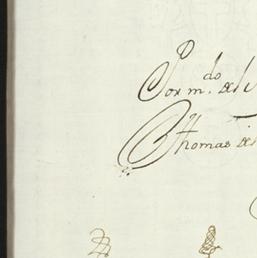 Por m.do del
Thomas de